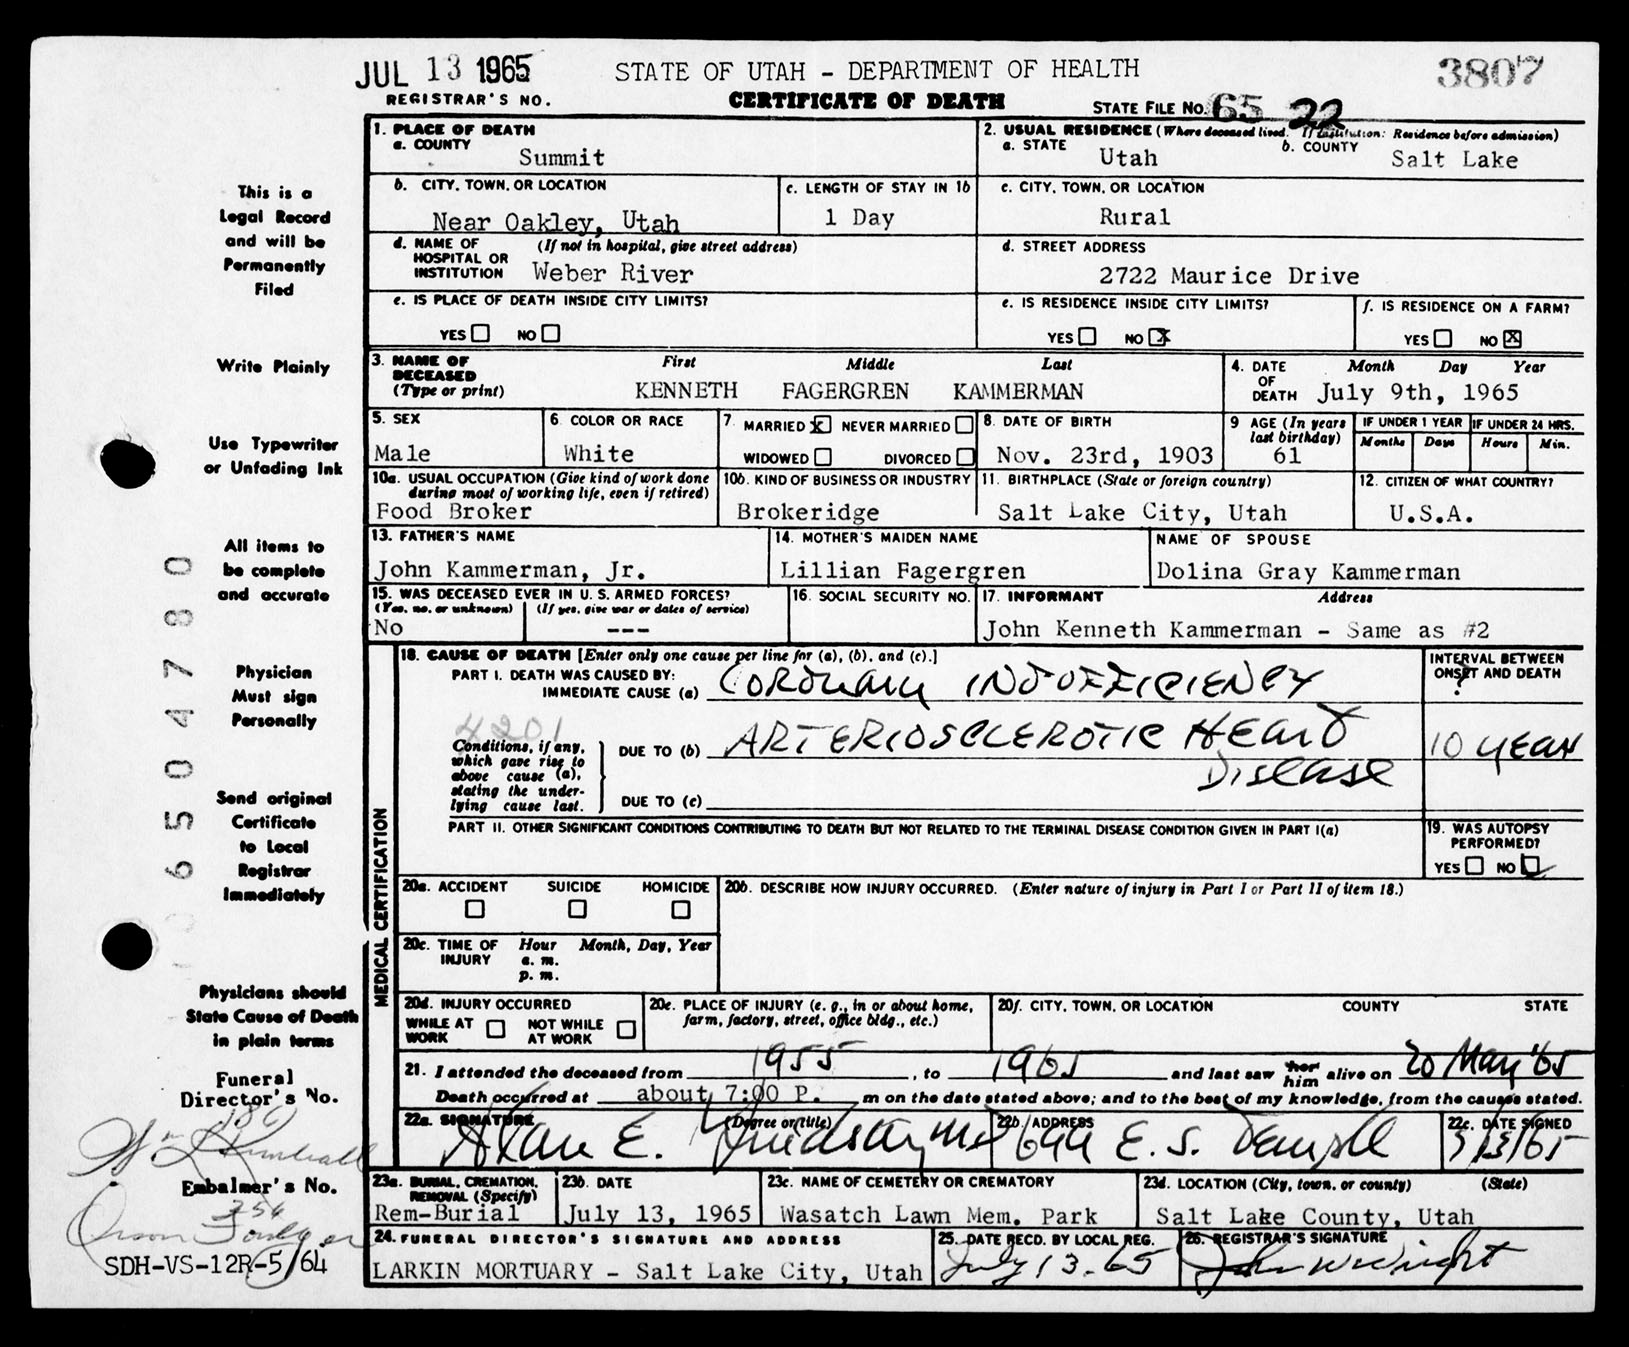 JUL 13 1965
STATE OF UTAH - DEPARTMENT OF HEALTH
3807
REGISTRAR'S NO.
CERTIFICATE OF DEATH
STATE FILE NO. 65 22
This is a
Legal Record
and will be
Permanently
Filed
Write Plainly
Use Typewriter
or Unfading Ink
All items to
be complete
and accurate
Physician
Must sign
Personally
Send original
Certificate
to Local
Registrar
Immediately
Physicians should
State Cause of Death
in plain terms
Funeral
Director's No.
186
Embalmer's No.
256
SDH-VS-12R-5/64
6504780
1. PLACE OF DEATH
a. COUNTY
Summit
2. USUAL RESIDENCE (Where deceased lived. If institution: Residence before admission)
a. STATE
Utah
b. COUNTY
Salt Lake
b. CITY, TOWN, OR LOCATION
Near Oakley, Utah
c. LENGTH OF STAY IN 1b
1 Day
c. CITY, TOWN, OR LOCATION
Rural
d. NAME OF HOSPITAL OR INSTITUTION
(If not in hospital, give street address)
Weber River
d. STREET ADDRESS
2722 Maurice Drive
e. IS PLACE OF DEATH INSIDE CITY LIMITS?
YES NO
e. IS RESIDENCE INSIDE CITY LIMITS?
YES NO X
f. IS RESIDENCE ON A FARM?
YES NO X
3. NAME OF DECEASED (Type or print)
First Middle Last
KENNETH FAGERGREN KAMMERMAN
4. DATE OF DEATH
Month Day Year
July 9th, 1965
5. SEX
Male
6. COLOR OR RACE
White
7. MARRIED X NEVER MARRIED
WIDOWED DIVORCED
8. DATE OF BIRTH
Nov. 23rd, 1903
9 AGE (In years last birthday)
61
IF UNDER 1 YEAR
Months Days
IF UNDER 24 HRS.
Hours Min.
10a. USUAL OCCUPATION (Give kind of work done during most of working life, even if retired)
Food Broker
10b. KIND OF BUSINESS OR INDUSTRY
Brokeridge
11. BIRTHPLACE (State or foreign country)
Salt Lake City, Utah
12. CITIZEN OF WHAT COUNTRY?
U.S.A.
13. FATHER'S NAME
John Kammerman, Jr.
14. MOTHER'S MAIDEN NAME
Lillian Fagergren
NAME OF SPOUSE
Dolina Gray Kammerman
15. WAS DECEASED EVER IN U. S. ARMED FORCES?
(Yes, no, or unknown) (If yes, give war or dates of service)
No ---
16. SOCIAL SECURITY NO.
17. INFORMANT Address
John Kenneth Kammerman - Same as #2
MEDICAL CERTIFICATION
18. CAUSE OF DEATH [Enter only one cause per line for (a), (b), and (c).]
PART I. DEATH WAS CAUSED BY:
IMMEDIATE CAUSE (a) CORONARY INSUFFICIENCY
INTERVAL BETWEEN ONSET AND DEATH
?
4201
Conditions, if any, which gave rise to above cause (a), stating the underlying cause last.
DUE TO (b) ARTERIOSCLEROTIC HEART DISEASE
10 YEAR
DUE TO (c)
PART II. OTHER SIGNIFICANT CONDITIONS CONTRIBUTING TO DEATH BUT NOT RELATED TO THE TERMINAL DISEASE CONDITION GIVEN IN PART I(a)
19. WAS AUTOPSY PERFORMED?
YES NO ✓
20a. ACCIDENT SUICIDE HOMICIDE
20b. DESCRIBE HOW INJURY OCCURRED. (Enter nature of injury in Part I or Part II of item 18.)
20c. TIME OF INJURY Hour Month, Day, Year
a. m.
p. m.
20d. INJURY OCCURRED
WHILE AT WORK NOT WHILE AT WORK
20e. PLACE OF INJURY (e. g., in or about home, farm, factory, street, office bldg., etc.)
20f. CITY, TOWN, OR LOCATION COUNTY STATE
21. I attended the deceased from 1955, to 1965 and last saw her him alive on 20 May '65
Death occurred at about 7:00 P. m on the date stated above; and to the best of my knowledge, from the causes stated.
22a. SIGNATURE (Degree or title)
Alan E. Lindsay MD
22b. ADDRESS
699 E. S. Temple
22c. DATE SIGNED
23a. BURIAL, CREMATION, REMOVAL (Specify)
Rem-Burial
23b. DATE
July 13, 1965
23c. NAME OF CEMETERY OR CREMATORY
Wasatch Lawn Mem. Park
23d. LOCATION (City, town, or county) (State)
Salt Lake County, Utah
24. FUNERAL DIRECTOR'S SIGNATURE AND ADDRESS
LARKIN MORTUARY - Salt Lake City, Utah
25. DATE RECD. BY LOCAL REG.
July 13-65
26. REGISTRAR'S SIGNATURE
John W Wright